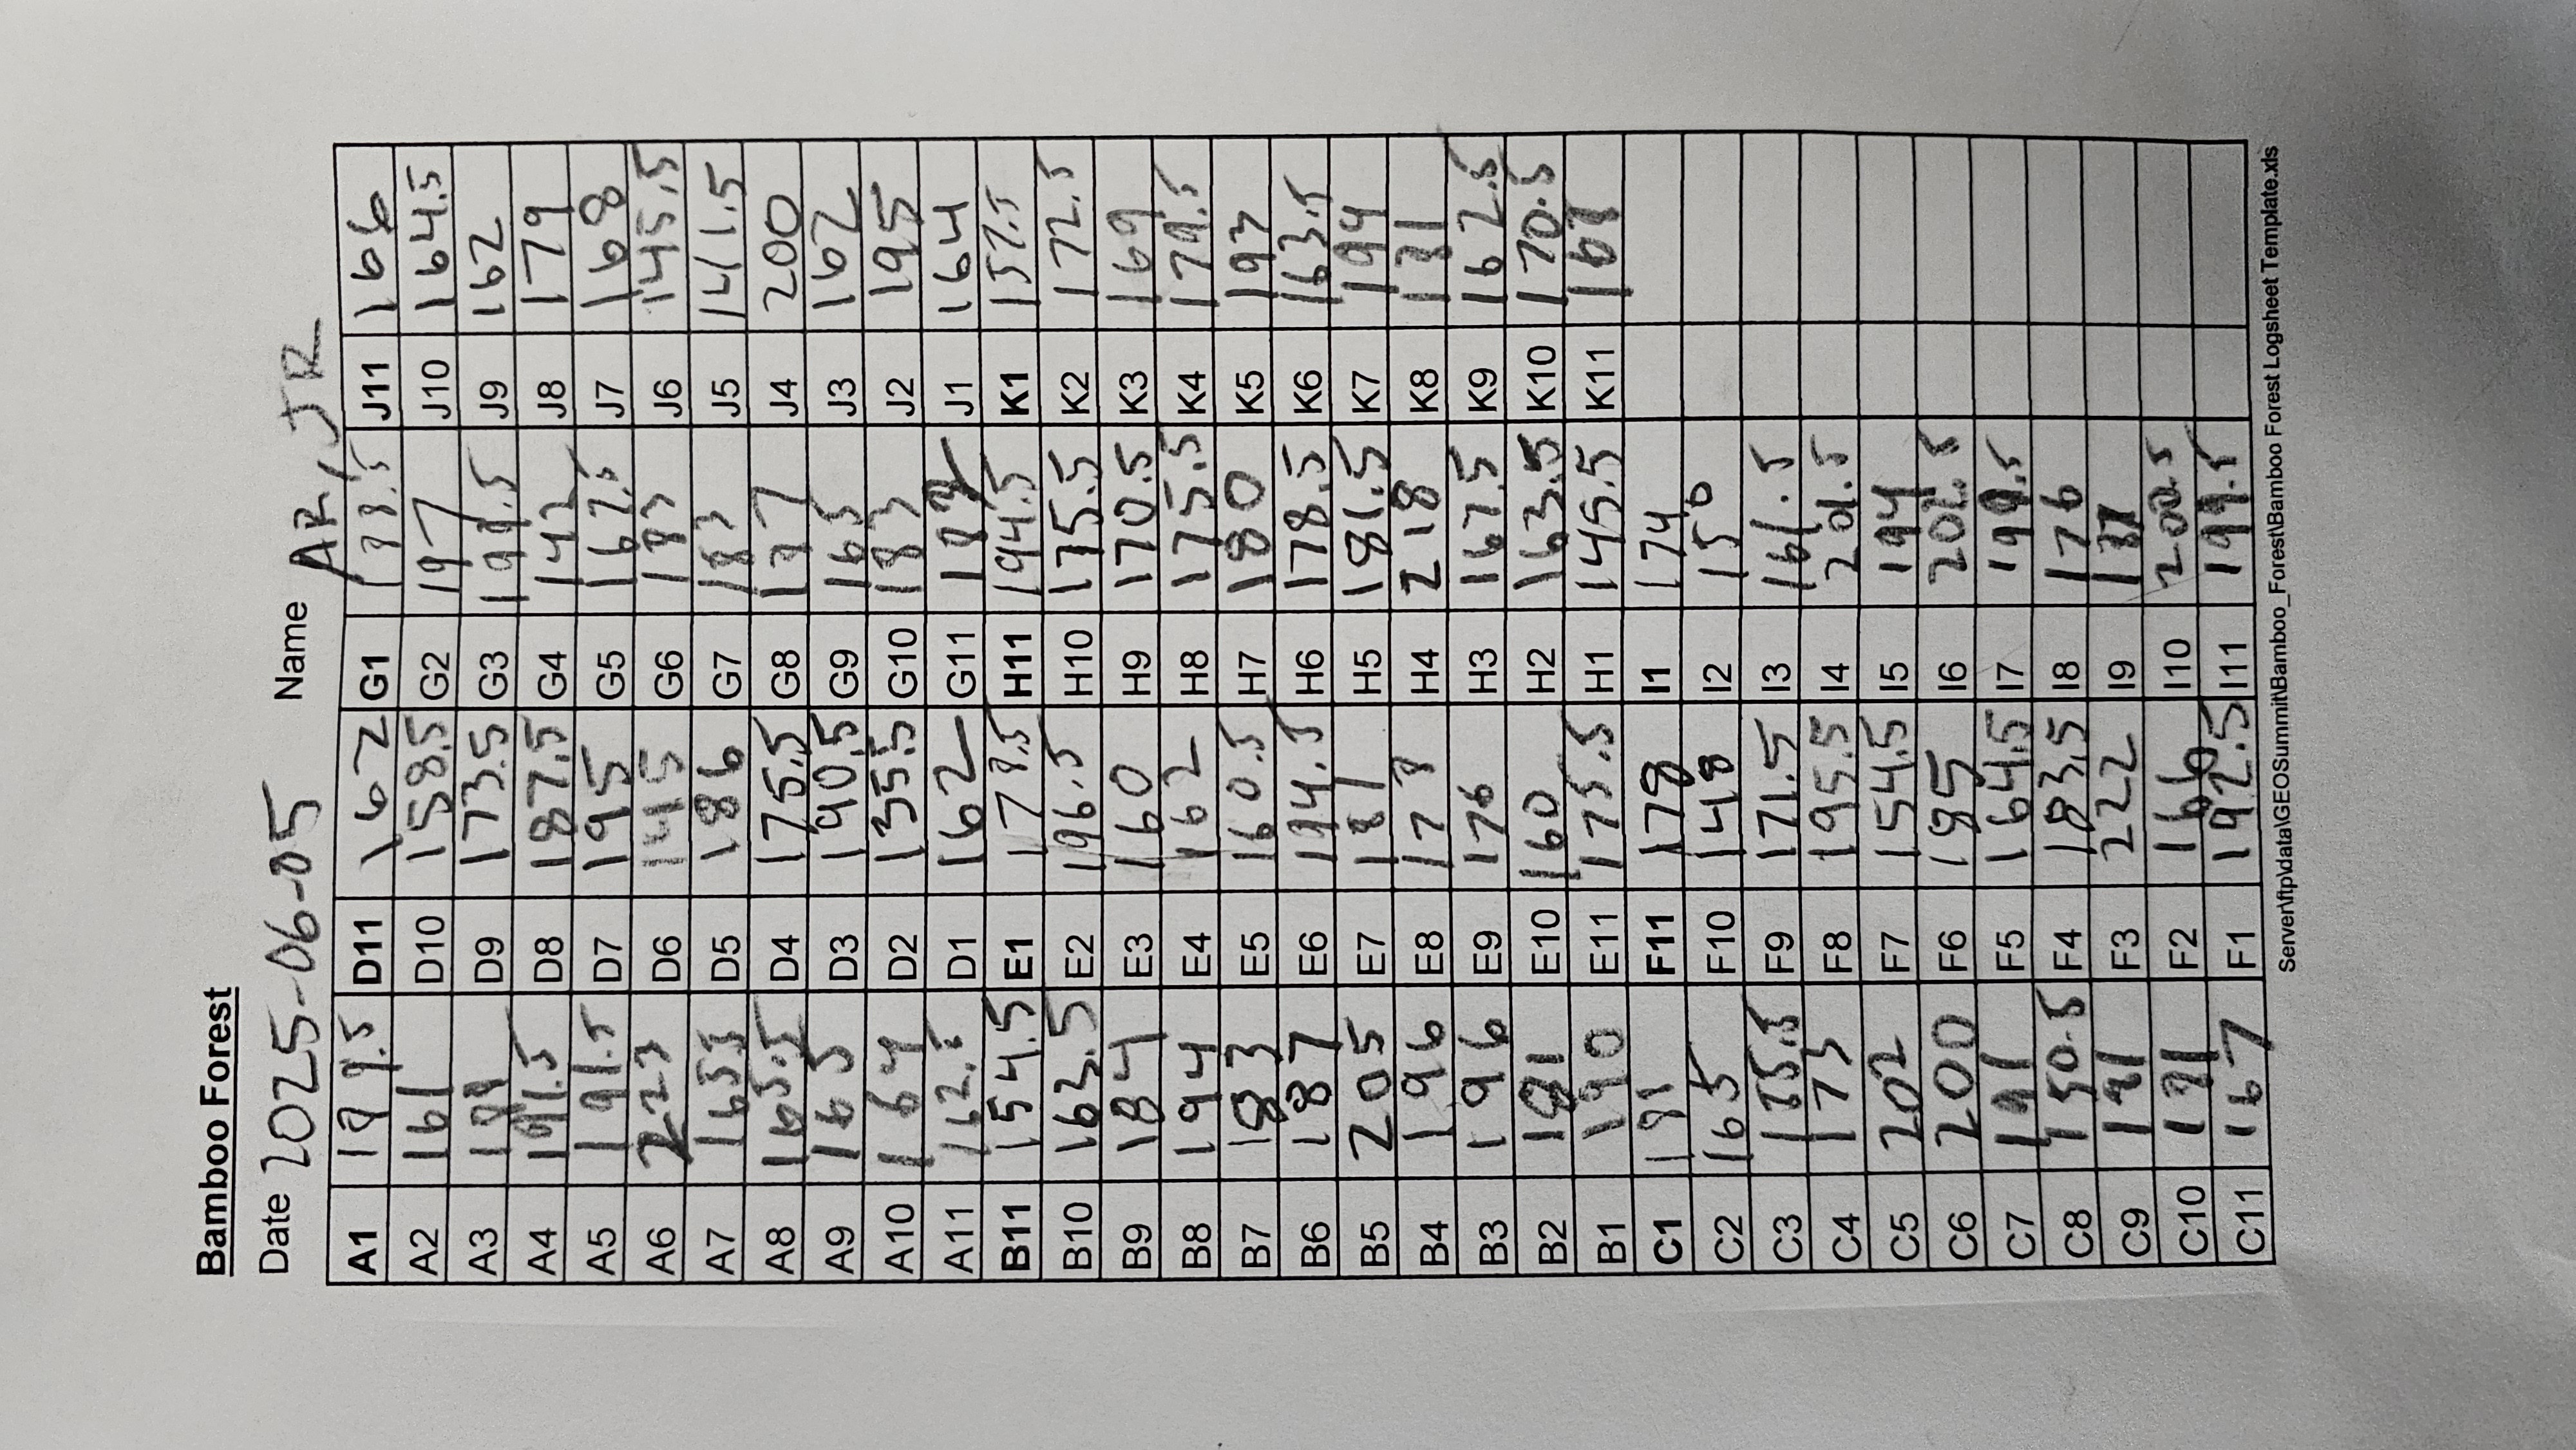 Bamboo Forest
Date 2025-06-05 Name AR/JR
A1 199.5 D11 162 G1 J11 166
A2 161 D10 158.5 G2 197 J10 164.5
A3 D9 173.5 G3 199.5 J9 162
A4 191.5 D8 187.5 G4 142 J8 179
A5 191.5 D7 195 G5 167.5 J7 168
A6 223 D6 145 G6 183 J6 145.5
A7 165.5 D5 186 G7 183 J5 141.5
A8 165.5 D4 175.5 G8 J4 200
A9 165 D3 190.5 G9 165 J3 162
A10 164 D2 135.5 G10 183 J2 195
A11 D1 162 G11 J1 164
B11 154.5 E1 H11 194.5 K1 157.5
B10 163.5 E2 196.5 H10 175.5 K2 172.5
B9 184 E3 160 H9 170.5 K3 169
B8 194 E4 162 H8 175.5 K4 179.5
B7 183 E5 160.5 H7 180 K5 193
B6 187 E6 194.5 H6 178.5 K6 163.5
B5 205 E7 181 H5 181.5 K7 194
B4 196 E8 178 H4 218 K8
B3 196 E9 176 H3 167.5 K9 162.5
B2 181 E10 160 H2 163.5 K10 170.5
B1 190 E11 175.5 H1 145.5 K11
C1 191 F11 178 I1 174
C2 165 F10 148 I2 150
C3 F9 171.5 I3 161.5
C4 175 F8 195.5 I4 201.5
C5 202 F7 154.5 I5 194
C6 200 F6 185 I6 201.5
C7 191 F5 164.5 I7 199.5
C8 150.5 F4 183.5 I8 176
C9 191 F3 222 I9
C10 191 F2 166 I10 200.5
C11 167 F1 192.5 I11 199.5
Server\ftp\data\GEOSummit\Bamboo_Forest\Bamboo Forest Logsheet Template.xls